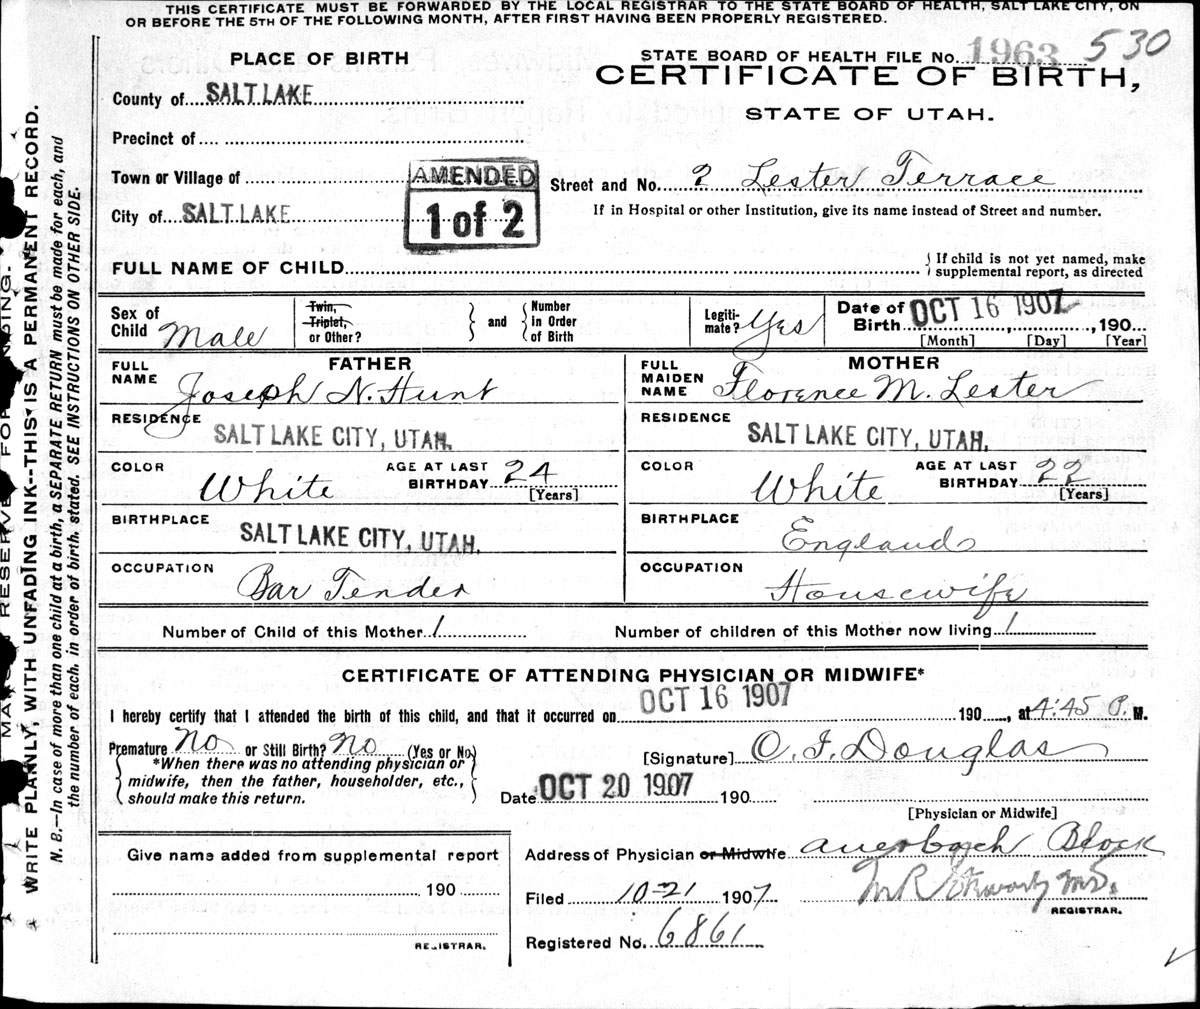 THIS CERTIFICATE MUST BE FORWARDED BY THE LOCAL REGISTRAR TO THE STATE BOARD OF HEALTH, SALT LAKE CITY, ON
OR BEFORE THE 5TH OF THE FOLLOWING MONTH, AFTER FIRST HAVING BEEN PROPERLY REGISTERED.
PLACE OF BIRTH
STATE BOARD OF HEALTH FILE No. 1963 530
CERTIFICATE OF BIRTH,
STATE OF UTAH.
County of SALT LAKE
Precinct of
Town or Village of
City of SALT LAKE
AMENDED
1 of 2
Street and No. 2 Lester Terrace
If in Hospital or other Institution, give its name instead of Street and number.
FULL NAME OF CHILD
If child is not yet named, make
supplemental report, as directed
Sex of
Child Male
Twin,
Triplet,
or Other?
and
Number
in Order
of Birth
Legiti-
mate? Yes
Date of
Birth OCT 16 1907, 190
[Month] [Day] [Year]
FATHER
FULL
NAME Joseph N. Hunt
MOTHER
FULL
MAIDEN
NAME Florence M. Lester
RESIDENCE
SALT LAKE CITY, UTAH.
RESIDENCE
SALT LAKE CITY, UTAH.
COLOR
White
AGE AT LAST
BIRTHDAY 24
[Years]
COLOR
White
AGE AT LAST
BIRTHDAY 22
[Years]
BIRTHPLACE
SALT LAKE CITY, UTAH.
BIRTHPLACE
England
OCCUPATION
Bar Tender
OCCUPATION
Housewife
Number of Child of this Mother 1
Number of children of this Mother now living 1
CERTIFICATE OF ATTENDING PHYSICIAN OR MIDWIFE*
I hereby certify that I attended the birth of this child, and that it occurred on OCT 16 1907 190, at 4:45 P. M.
Premature No or Still Birth? No (Yes or No)
*When there was no attending physician or
midwife, then the father, householder, etc.,
should make this return.
[Signature] O. J. Douglas
Date OCT 20 1907 190
[Physician or Midwife]
Give name added from supplemental report
190
REGISTRAR.
Address of Physician or Midwife Auerbach Block
Filed 10-21 1907
REGISTRAR.
Registered No. 6861
WRITE PLAINLY, WITH UNFADING INK--THIS IS A PERMANENT RECORD.
N. B.—In case of more than one child at a birth, a SEPARATE RETURN must be made for each, and
the number of each, in order of birth, stated. SEE INSTRUCTIONS ON OTHER SIDE.